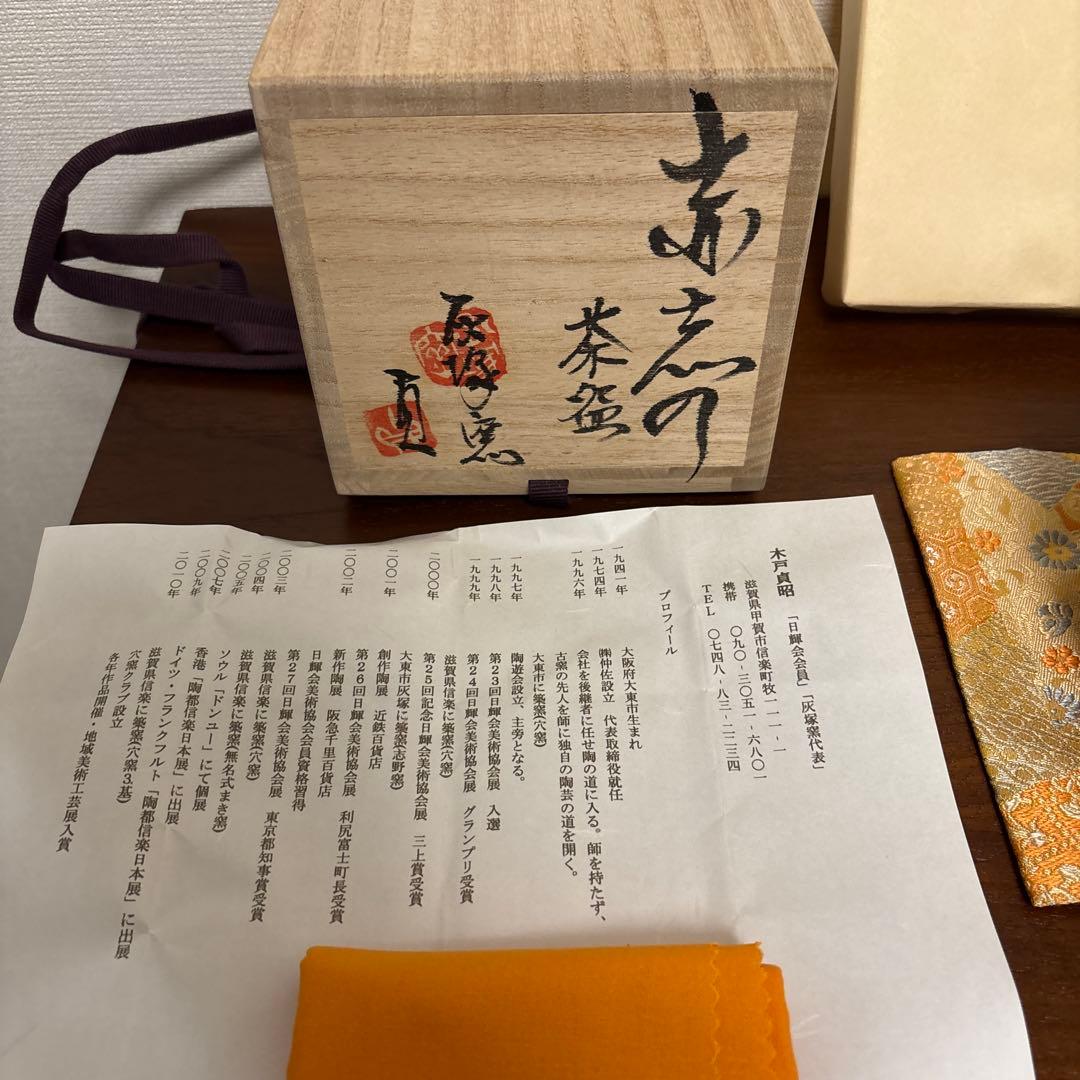 赤志の
茶盌
灰塚窯
貞
木戸貞昭 「日輝会会員」「灰塚窯代表」
滋賀県甲賀市信楽町牧一一一-一
携帯 〇九〇-三〇五一-六八〇一
TEL 〇七四八-八三-二二三四
プロフィール
一九四一年 大阪府大東市生まれ
一九七四年 ㈱仲佐設立 代表取締役就任
一九九六年 会社を後継者に任せ陶の道に入る。師を持たず、
古窯の先人を師に独自の陶芸の道を開く。
大東市に築窯(穴窯)
一九九七年 陶遊会設立、主旁となる。
一九九八年 第23回日輝会美術協会展 入選
一九九九年 第24回日輝会美術協会展 グランプリ受賞
滋賀県信楽に築窯(穴窯)
二〇〇〇年 第25回記念日輝会美術協会展 三上賞受賞
大東市灰塚に築窯(志野窯)
二〇〇一年 創作陶展 近鉄百貨店
新作陶展 阪急千里百貨店
二〇〇二年 第26回日輝会美術協会展 利尻富士町長受賞
日輝会美術協会会員資格習得
第27回日輝会美術協会展 東京都知事賞受賞
二〇〇三年 滋賀県信楽に築窯(穴窯)
二〇〇四年 滋賀県信楽に築窯(無名式まき窯)
二〇〇五年 ソウル「ドンユー」にて個展
二〇〇七年 香港「陶都信楽日本展」に出展
二〇〇九年 ドイツ・フランクフルト「陶都信楽日本展」に出展
二〇一〇年 滋賀県信楽に築窯(穴窯3基)
穴窯クラブ設立
各年作品開催・地域美術工芸展入賞